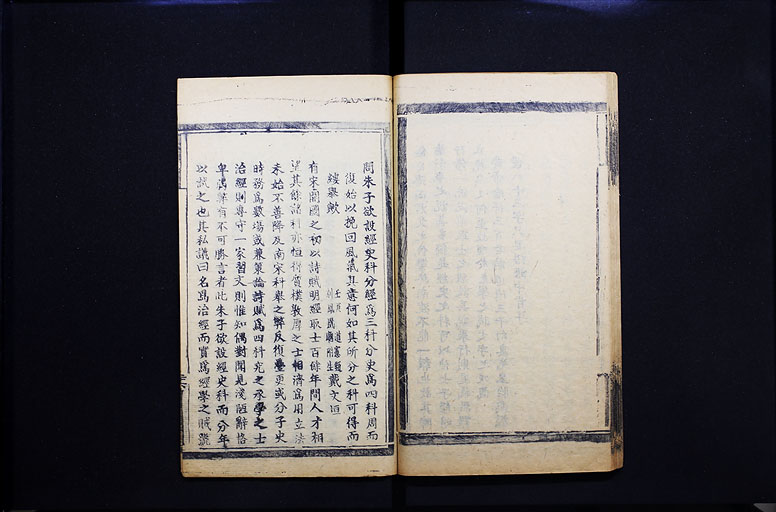 問朱子欲設經史科分經爲三科分史爲四科周而
復始以挽回風氣其意何如其所分之科可得而
縷舉歟
戴文
有宋開國之初以詩賦明經取士百餘年間人才相
望其餘諸科亦恒得質樸敦厚之士相濟爲用立法
未始不善降及南宋科舉之弊反復更或分子史
時務爲數場或兼策論詩賦爲四科究之承學之士
治經則專守一家習文則惟知偶對聞見淺陋辭
有不可勝言者此朱子欲設經史科而分年
以試之也其私議曰名爲治經而實爲經學之賊